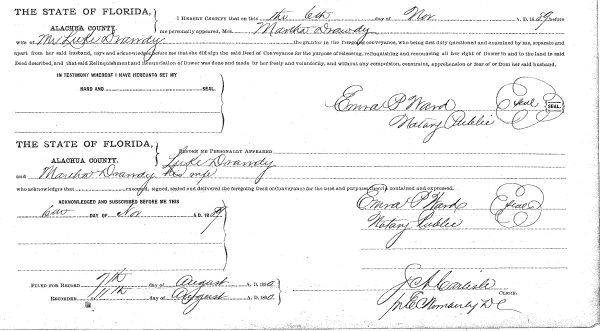 THE STATE OF FLORIDA,
ALACHUA COUNTY.
I HEREBY CERTIFY that on this the 6th day of Nov A. D. 1889 before
me personally appeared, Mrs. Martha Drawdy
wife of Mr Luke Drawdy the grantor in the foregoing conveyance, who being first duly questioned and examined by me, separate and
apart from her said husband, says and acknowledges before me that she did sign the said Deed of Conveyance for the purpose of releasing, relinquishing and renouncing all her right of Dower in and to the land in said
Deed described, and that said Relinquishment and Renunciation of Dower was done and made by her freely and voluntarily, and without any compulsion, constraint, apprehension or fear of or from her said husband.
IN TESTIMONY WHEREOF I HAVE HEREUNTO SET MY
HAND AND SEAL.
P Ward Seal SEAL.
Notary Public
THE STATE OF FLORIDA,
ALACHUA COUNTY.
BEFORE ME PERSONALLY APPEARED
Luke Drawdy
and Martha Drawdy his wife
who acknowledges that executed, signed, sealed and delivered the foregoing Deed of Conveyance for the uses and purposes therein contained and expressed.
ACKNOWLEDGED AND SUBSCRIBED BEFORE ME THIS
DAY OF Nov A. D. 1889
P Ward Seal
Notary Public
FILED FOR RECORD 7th day of August A. D. 1890
RECORDED 11th day of August A. D. 1890
J A Carlisle
CLERK.
D C